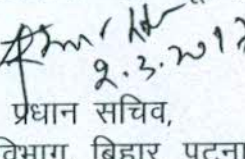 2.3.2017
प्रधान सचिव,
विभाग, बिहार, पटना